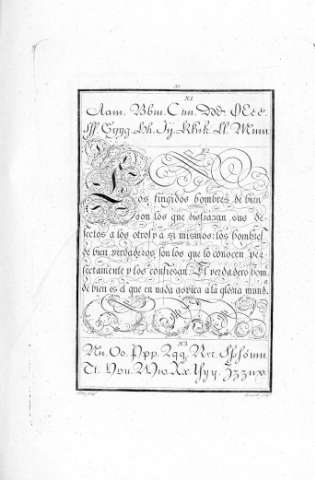 N.1.
Aam. Bbm. Ccm. Dd. Eee.
Hh. Kkk. Ll. Mmm
N.2.
Los fingidos hombres de bien
son los que disfrazan sus de-
fectos a los otros y a si mismos: los hombres
de bien verdaderos, son los que lo conocen per-
fectamente y los confiesan. El verdadero hom.
de bien es el que en nada aspira a la gloria mund.
N.3.
Nn. Oo. Ppp. Qqq. Rrr.
Tt. Vvu. Xx. Yyy. Zzz